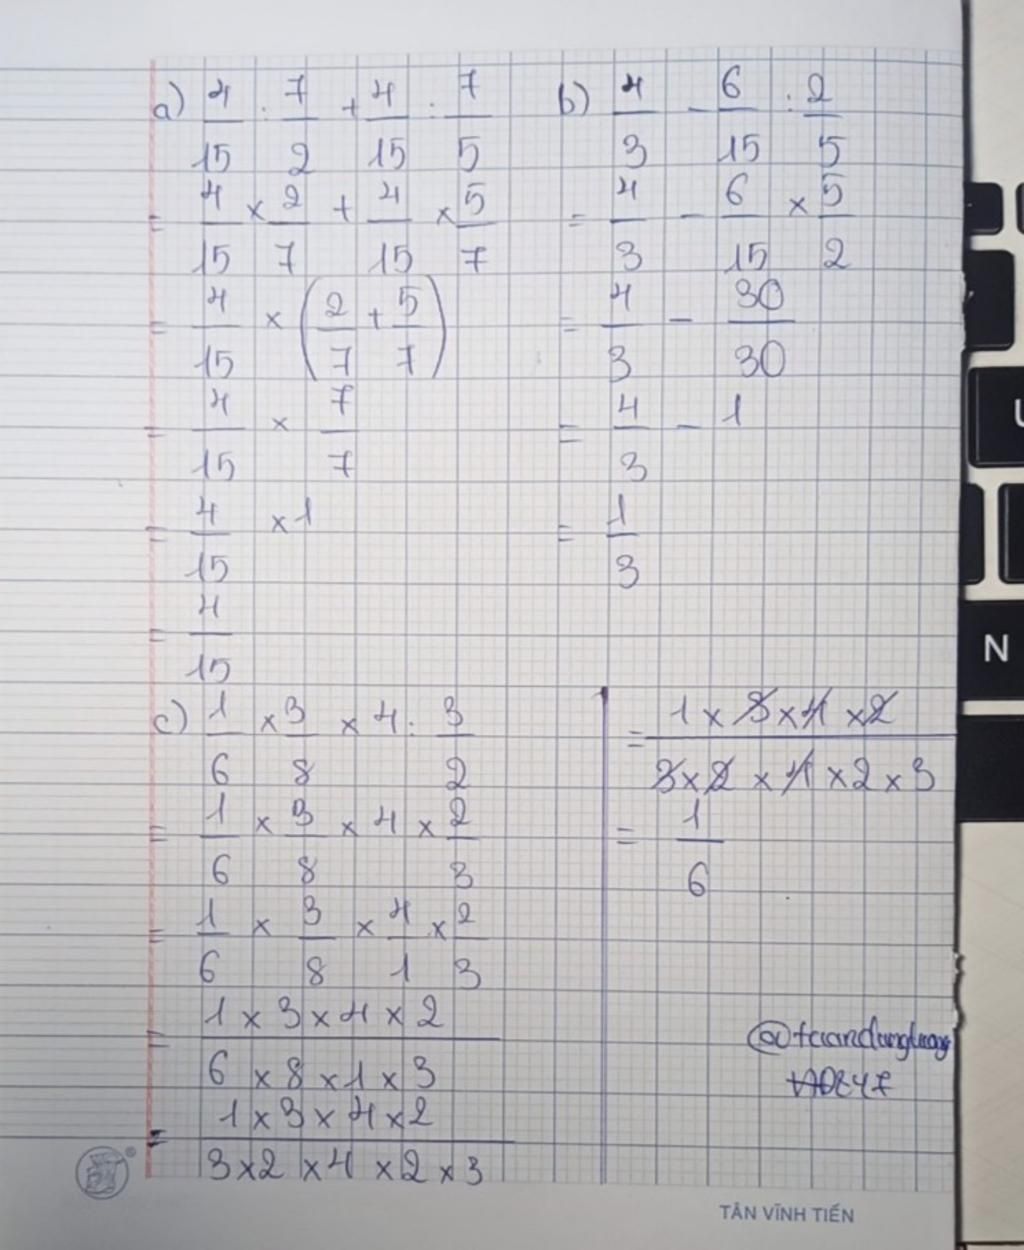 a) 4/15 : 7/2 + 4/15 : 7/5
= 4/15 × 2/7 + 4/15 × 5/7
= 4/15 × (2/7 + 5/7)
= 4/15 × 7/7
= 4/15 × 1
= 4/15
b) 4/3 - 6/15 : 2/5
= 4/3 - 6/15 × 5/2
= 4/3 - 30/30
= 4/3 - 1
= 1/3
c) 1/6 × 3/8 × 4 : 3/2
= 1/6 × 3/8 × 4 × 2/3
= 1/6 × 3/8 × 4/1 × 2/3
= 1 × 3 × 4 × 2 / 6 × 8 × 1 × 3
= 1 × 3 × 4 × 2 / 3 × 2 × 4 × 2 × 3
= 1 × 3 × 4 × 2 / 3 × 2 × 4 × 2 × 3
= 1/6
TÂN VĨNH TIẾN
U
N